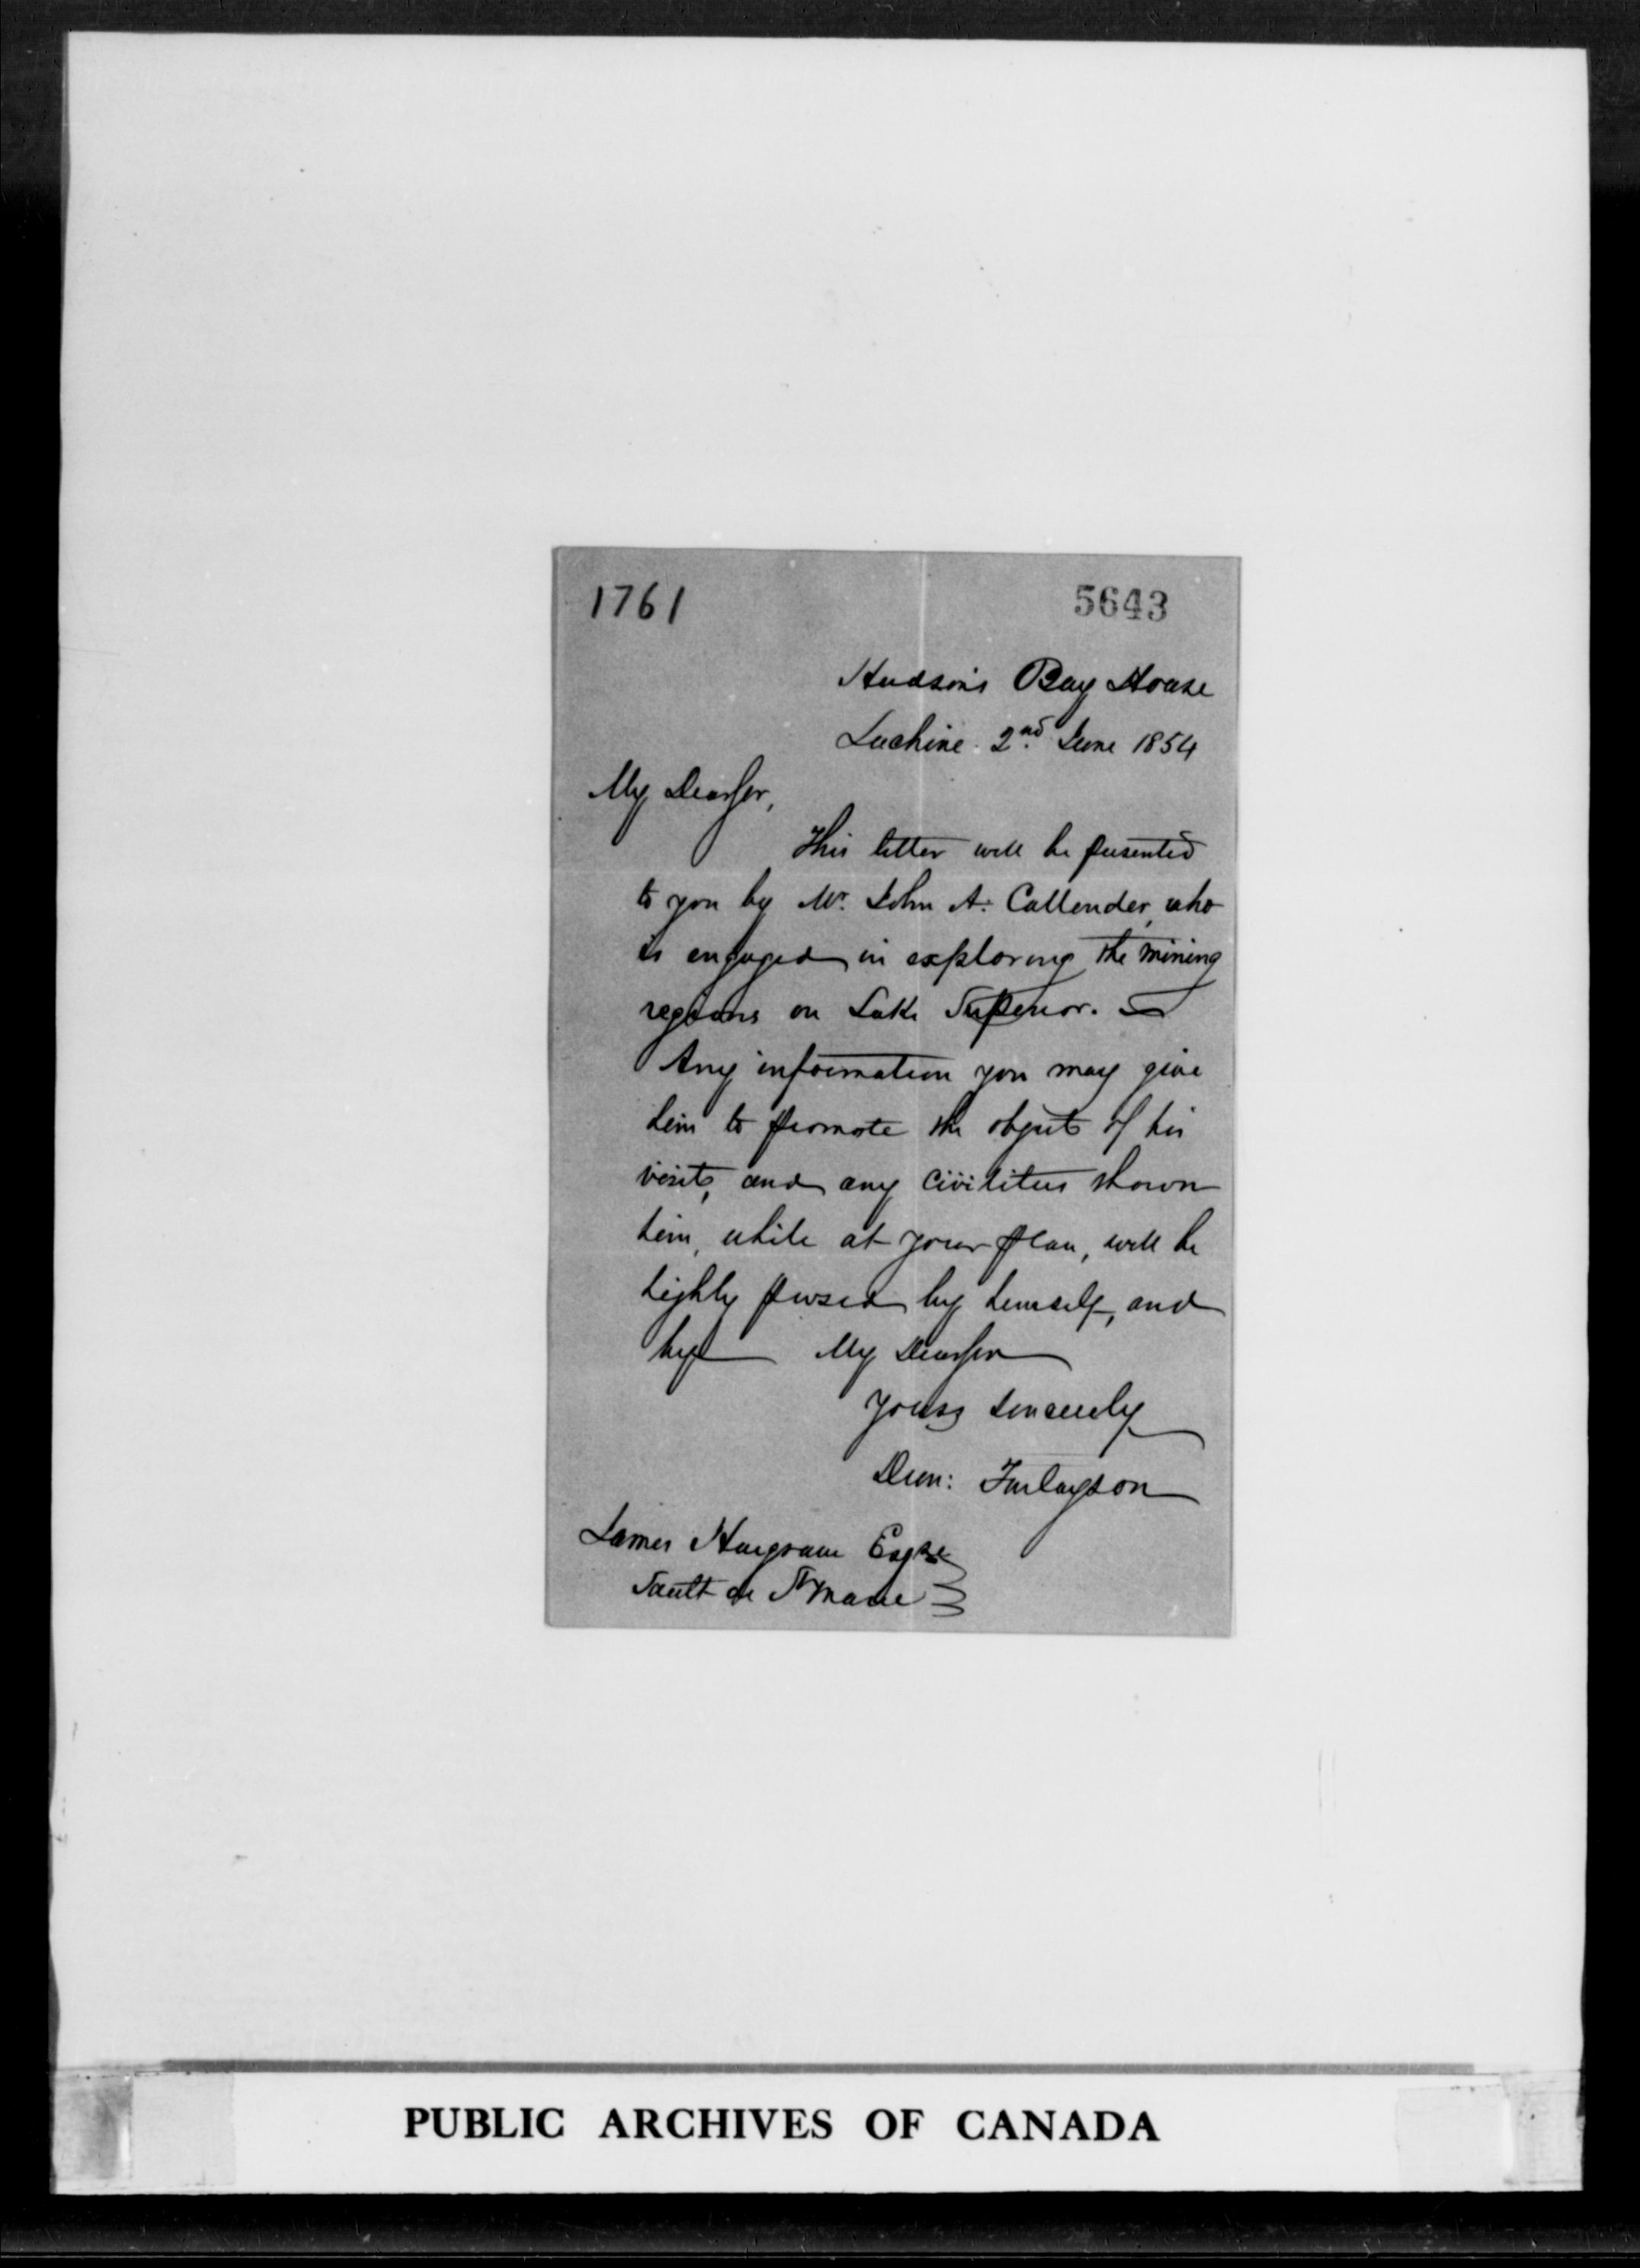 1761 5643
Hudson's Bay House
Lachine 2nd June 1854
My Dear Sir,
This letter will be presented
to you by Mr. John A. Callender, who
is engaged in exploring the mining
regions on Lake Superior.
Any information you may give
him to promote the objects of his
visit, and any civilities shown
him, while at your place, will be
highly prized by himself, and
by My Dear Sir
Yours sincerely
Dun: Finlayson
James Hargrave Esqre
Sault de St Marie
PUBLIC ARCHIVES OF CANADA